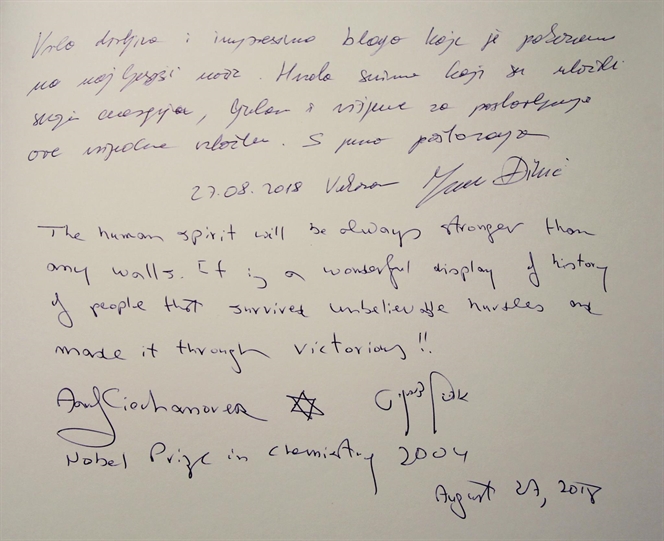 Vrlo dirljivo i impresivno blago koje je pokazano
na najljepši način. Hvala svima koji su uložili
svoju energiju, ljubav i vrijeme za postavljanje
ove vrijedne izložbe. S puno poštovanja
27.08.2018 Đikić
The human spirit will be always stronger than
any walls. It is a wonderful display of history
of people that survived unbelievable hurdles and
made it through victorious!!.
Aaron Ciechanover
Nobel Prize in chemistry 2004
August 27, 2018